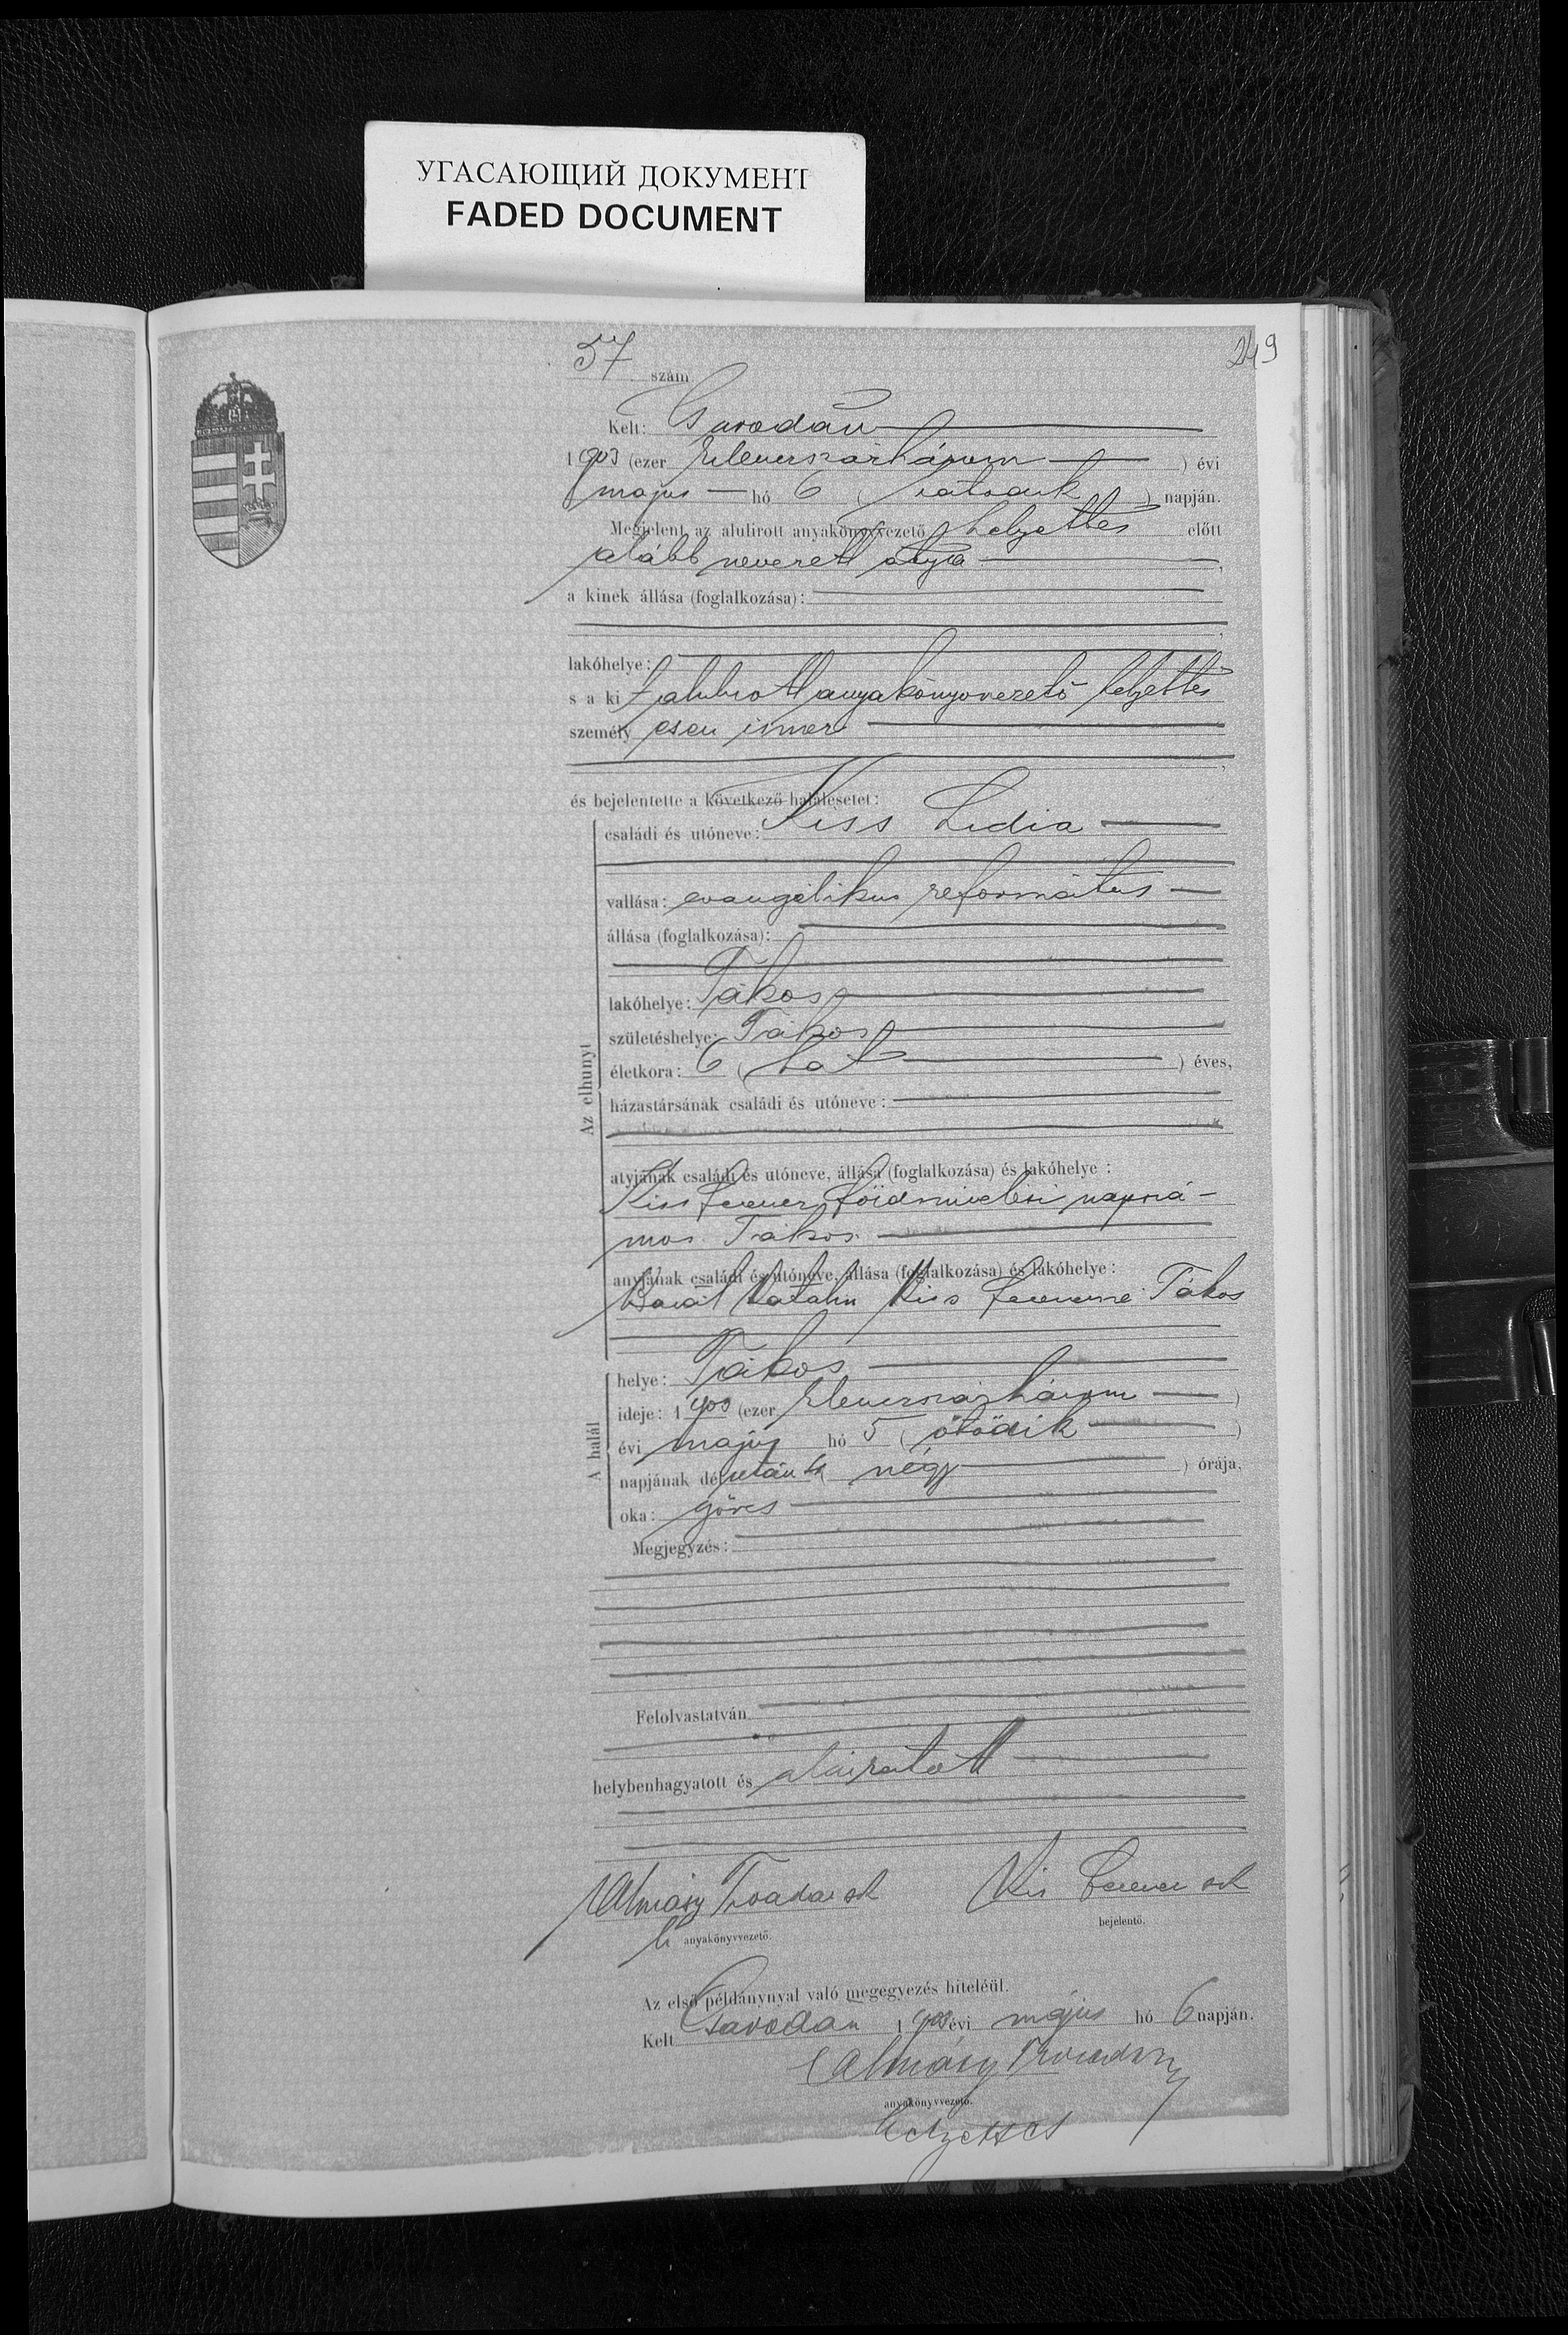 УГАСАЮЩИЙ ДОКУМЕНТ
FADED DOCUMENT
249
57 szám
Kelt: Csarodán
1903 (ezer kilencszázhárom) évi
május hó 6 (hatodik) napján.
Megjelent az alulirott anyakönyvvezető helyettes előtt
alább nevezett atya,
a kinek állása (foglalkozása):
lakóhelye:
s a ki t alulirott anyakönyvvezető helyettes
személyesen ismer,
és bejelentette a következő halálesetet:
Az elhunyt
családi és utóneve: Kiss Lidia
vallása: evangélikus református
állása (foglalkozása):
lakóhelye: Tákos
születéshelye: Tákos
életkora: 6 (hat) éves,
házastársának családi és utóneve:
atyjának családi és utóneve, állása (foglalkozása) és lakóhelye:
Kiss Ferencz földmivelési napszá-
mos Tákos
anyjának családi és utóneve, állása (foglalkozása) és lakóhelye:
Katalin Kiss Ferencné Tákos
A halál
helye: Tákos
ideje: 1903 (ezer kilencszázhárom)
évi május hó 5 (ötödik)
napjának délután 4 (négy) órája,
oka: görcs
Megjegyzés:
Felolvastatván
helybenhagyatott és aláiratott
Almásy sk Kis Ferencz sk
h anyakönyvvezető. bejelentő.
Az első példánynyal való megegyezés hiteléül.
Kelt Csarodán 1903 évi május hó 6 napján.
Almásy
anyakönyvvezető.
helyettes